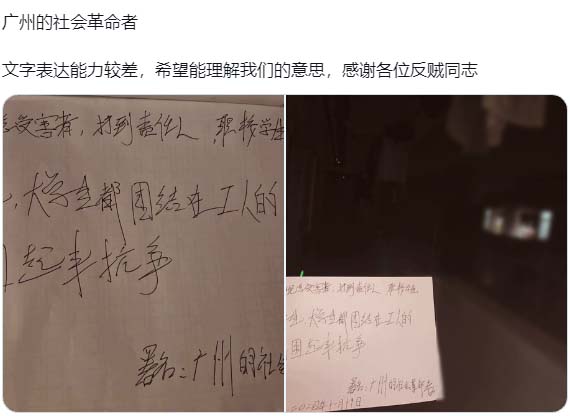 广州的社会革命者
文字表达能力较差，希望能理解我们的意思，感谢各位反贼同志
受害者，找到责任人，职校学生
，大学生都团结在工人的
起来抗争
署名：广州的社会
受害者，找到责任人，职校学生
，大学生都团结在工人的
围起来抗争
署名：广州的社会革命者
月19日